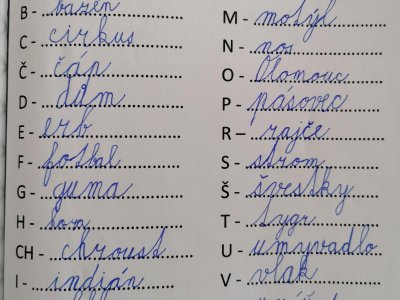 B - bazén
C - cirkus
Č - čáp
D - dům
E - erb
F - fotbal
G - guma
H - hora
CH - chroust
I - indián
M - motýl
N - nos
O - Olomouc
P - pásovec
R - rajče
S - strom
Š - švestky
T - tygr
U - umyvadlo
V - vlak